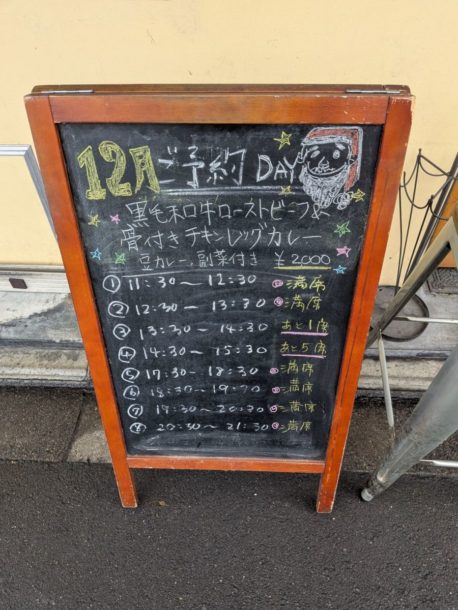 12月ご予約DAY
黒毛和牛ローストビーフ&
骨付きチキンレッグカレー
豆カレー、副菜付き ¥2000
① 11:30〜12:30 満席
② 12:30〜13:30 満席
③ 13:30〜14:30 あと1席
④ 14:30〜15:30 あと5席
⑤ 17:30〜18:30 満席
⑥ 18:30〜19:30 満席
⑦ 19:30〜20:30 満席
⑧ 20:30〜21:30 満席